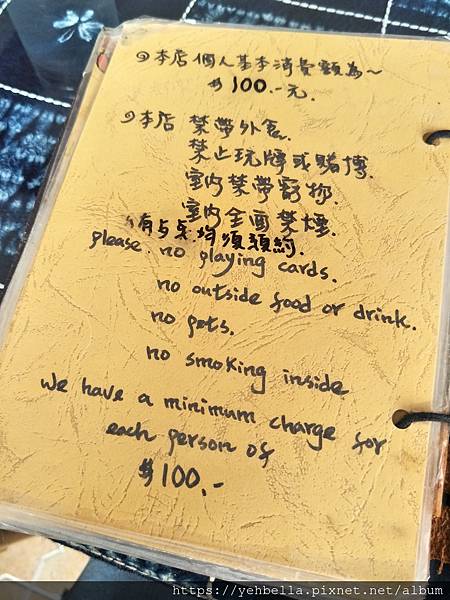 本店個人基本消費額為～
$100.-元.
本店 禁帶外食.
禁止玩牌或賭博.
室內禁帶寵物.
室內全面禁煙.
please. no playing cards.
no outside food or drink.
no pets.
no smoking inside
we have a minimum charge for
each person of
$100.-
https://yehbella.pixnet.net/album